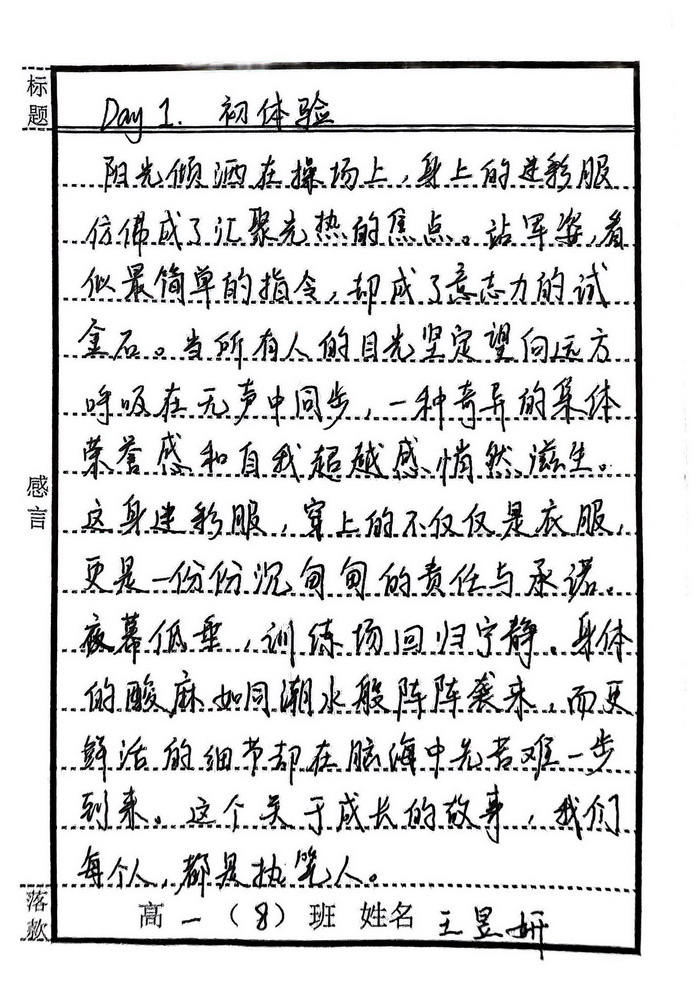 标题
Day 1. 初体验
阳光倾洒在操场上，身上的迷彩服
仿佛成了汇聚光热的焦点。站军姿，看
似最简单的指令，却成了意志力的试
金石。当所有人的目光坚定望向远方
呼吸在无声中同步，一种奇异的集体
荣誉感和自我超越感悄然滋生。
感言
这身迷彩服，穿上的不仅仅是衣服，
更是一份份沉甸甸的责任与承诺。
夜幕低垂，训练场回归宁静。身体
的酸麻如同潮水般阵阵袭来，而更
鲜活的细节却在脑海中先苦难一步
到来。这个关于成长的故事，我们
每个人，都是执笔人。
落款
高一（8）班 姓名 王昱妍